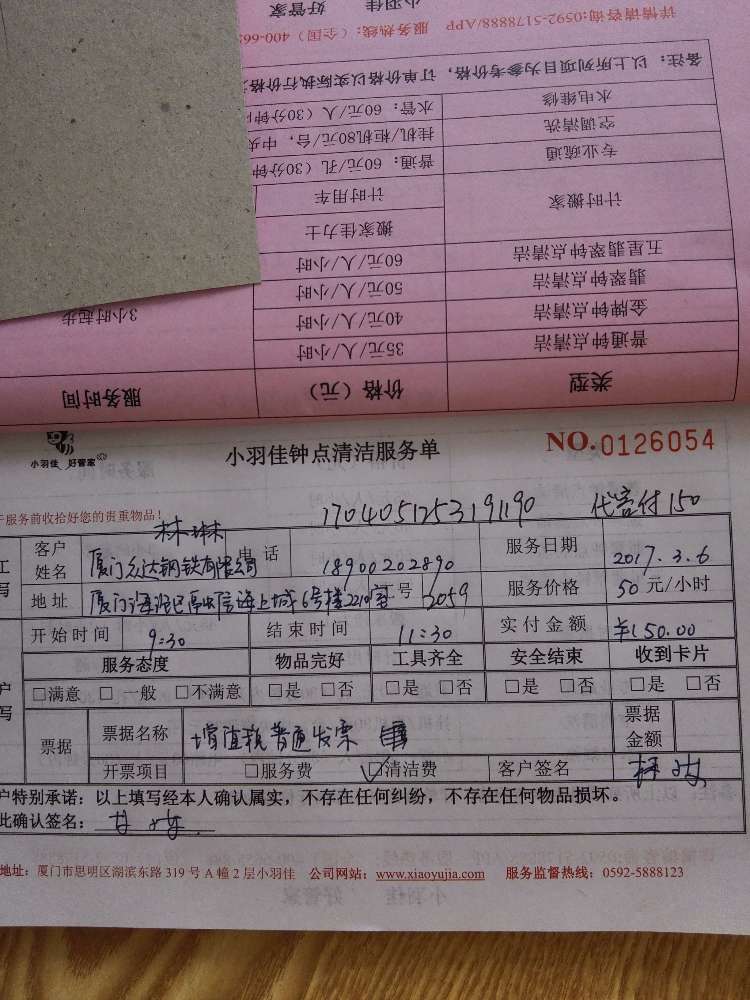 详情请咨询:0592-5178888/APP 服务热线:(全国)400-66
小羽佳 好管家
备注:以上所列项目为参考价格,订单价格以实际执行价格
水电维修 水管:60元/人(30分钟
空调清洗 挂机/柜机80元/台,中央
专业疏通 普通:60元/孔(30分钟
计时搬家 计时用车
搬家佳力士
五星翡翠钟点清洁 60元/人/小时
翡翠钟点清洁 50元/人/小时
金牌钟点清洁 40元/人/小时 3小时起步
普通钟点清洁 35元/人/小时
类型 价格(元) 服务时间
小羽佳 好管家
小羽佳钟点清洁服务单 NO.0126054
服务前收拾好您的贵重物品!
林琳 1704051253191190 代客付150
客户姓名 厦门众达钢铁有限公司 电话 18900202890 服务日期 2017.3.6
地址 厦门海沧区 海上城6号楼2210室 工号 2059 服务价格 50元/小时
开始时间 9:30 结束时间 11:30 实付金额 ¥150.00
服务态度 物品完好 工具齐全 安全结束 收到卡片
□满意 □一般 □不满意 □是 □否 □是 □否 □是 □否 □是 □否
票据 票据名称 增值税普通发票 票据金额
开票项目 □服务费 ☑清洁费 客户签名
户特别承诺:以上填写经本人确认属实,不存在任何纠纷,不存在任何物品损坏。
此确认签名:
地址:厦门市思明区湖滨东路319号A幢2层小羽佳 公司网站:www.xiaoyujia.com 服务监督热线:0592-5888123